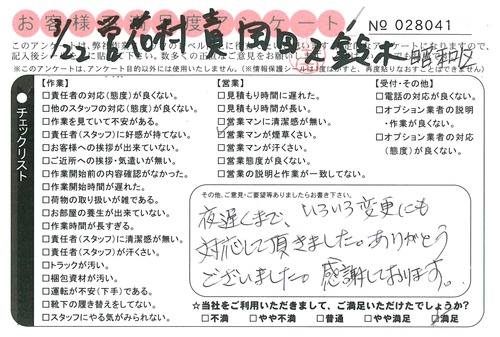 お客様満足度アンケート
No 028041
1/22 営若村責岡田 2 鈴木 昭和区
※このアンケートは、アンケート目的以外には使用いたしません。(※情報保護シールは1度はがすと、再度貼りなおすことはできません)
チェックリスト
【作業】
□責任者の対応(態度)が良くない。
□他のスタッフの対応(態度)が良くない。
□作業を見ていて不安がある。
□責任者(スタッフ)に好感が持てない。
□お客様への挨拶が出来ていない。
□ご近所への挨拶・気遣いが無い。
□作業開始前の内容確認がなかった。
□作業開始時間が遅れた。
□荷物の取り扱いが雑である。
□お部屋の養生が出来ていない。
□作業時間が長すぎる。
□責任者(スタッフ)に清潔感が無い。
□責任者(スタッフ)が汗くさい。
□トラックが汚い。
□梱包資材が汚い。
□運転が不安(下手)である。
□靴下の履き替えをしてない。
□スタッフにやる気がみられない。
【営業】
□見積もり時間に遅れた。
□見積もり時間が長い。
□営業マンに清潔感が無い。
□営業マンが煙草くさい。
□営業マンが汗くさい。
□営業態度が良くない。
□営業の説明と作業が一致してない。
【受付・その他】
□電話の対応が良くない。
□オプション業者の説明
・作業が良くない。
□オプション業者の対応
(態度)が良くない。
その他、ご意見・ご要望等ありましたらお書き下さい。
夜遅くまで、いろいろ変更にも
対応して頂きました。ありがとう
ございました。感謝しております。
☆当社をご利用いただきまして、ご満足いただけたでしょうか?
□不満 □やや不満 □普通 □やや満足 □満足